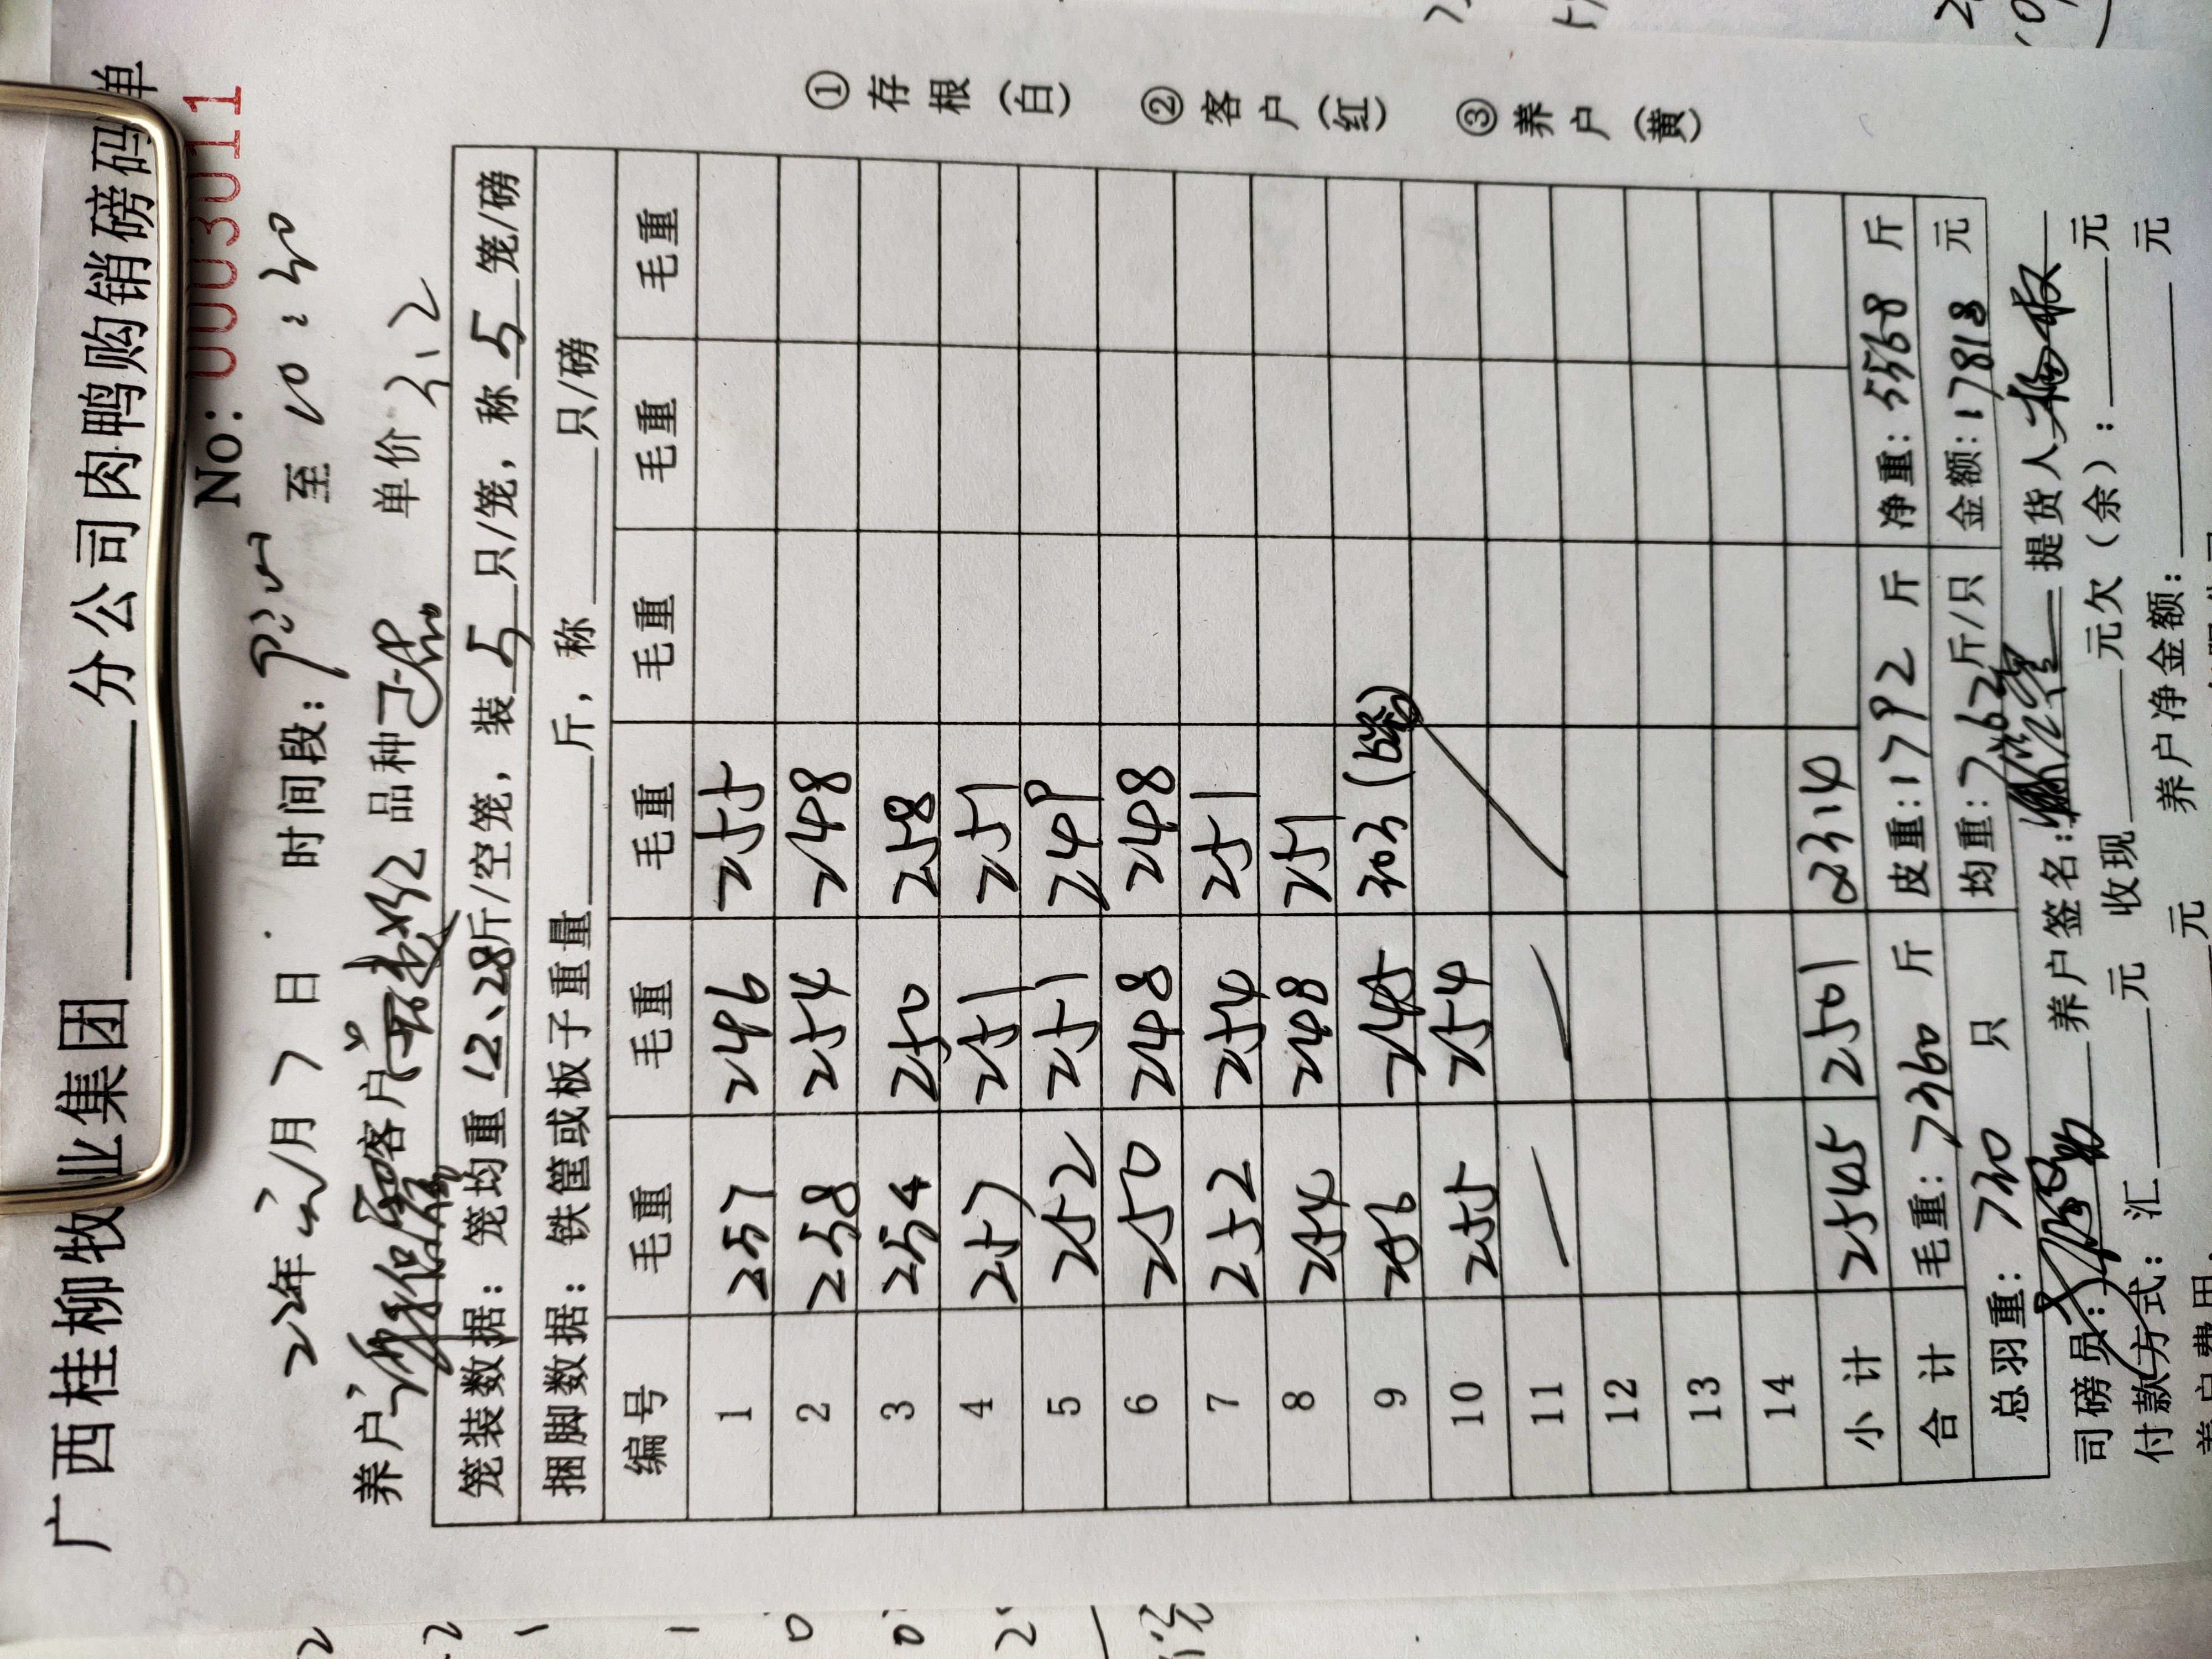 广西桂柳牧业集团____分公司肉鸭购销磅码单
No: 0003011
22年 月7日 时间段: 至 10:30
养户 客户 品种 单价 3.2
笼装数据: 笼均重 12.28 斤/空笼, 装 5 只/笼, 称 5 笼/磅
捆脚数据: 铁筐或板子重量____斤, 称____只/磅
编号 毛重 毛重 毛重 毛重 毛重 毛重
1 257 246 255
2 258 254 248
3 254 250 258
4 257 251 251
5 252 251 249
6 250 248 248
7 252 254 251
8 254 248 251
9 256 245 303 (6笼)
10 255 254
11
12
13
14
小计 2545 2501 2314
合计 毛重: 7360 斤 皮重: 1792 斤 净重: 5568 斤
总羽重: 730 只 均重: 7.62 斤/只 金额: 17818 元
司磅员: 养户签名: 提货人
付款方式: 汇____元 收现____元欠(余):____元
元 养户净金额:____元
① 存根(白) ② 客户(红) ③ 养户(黄)